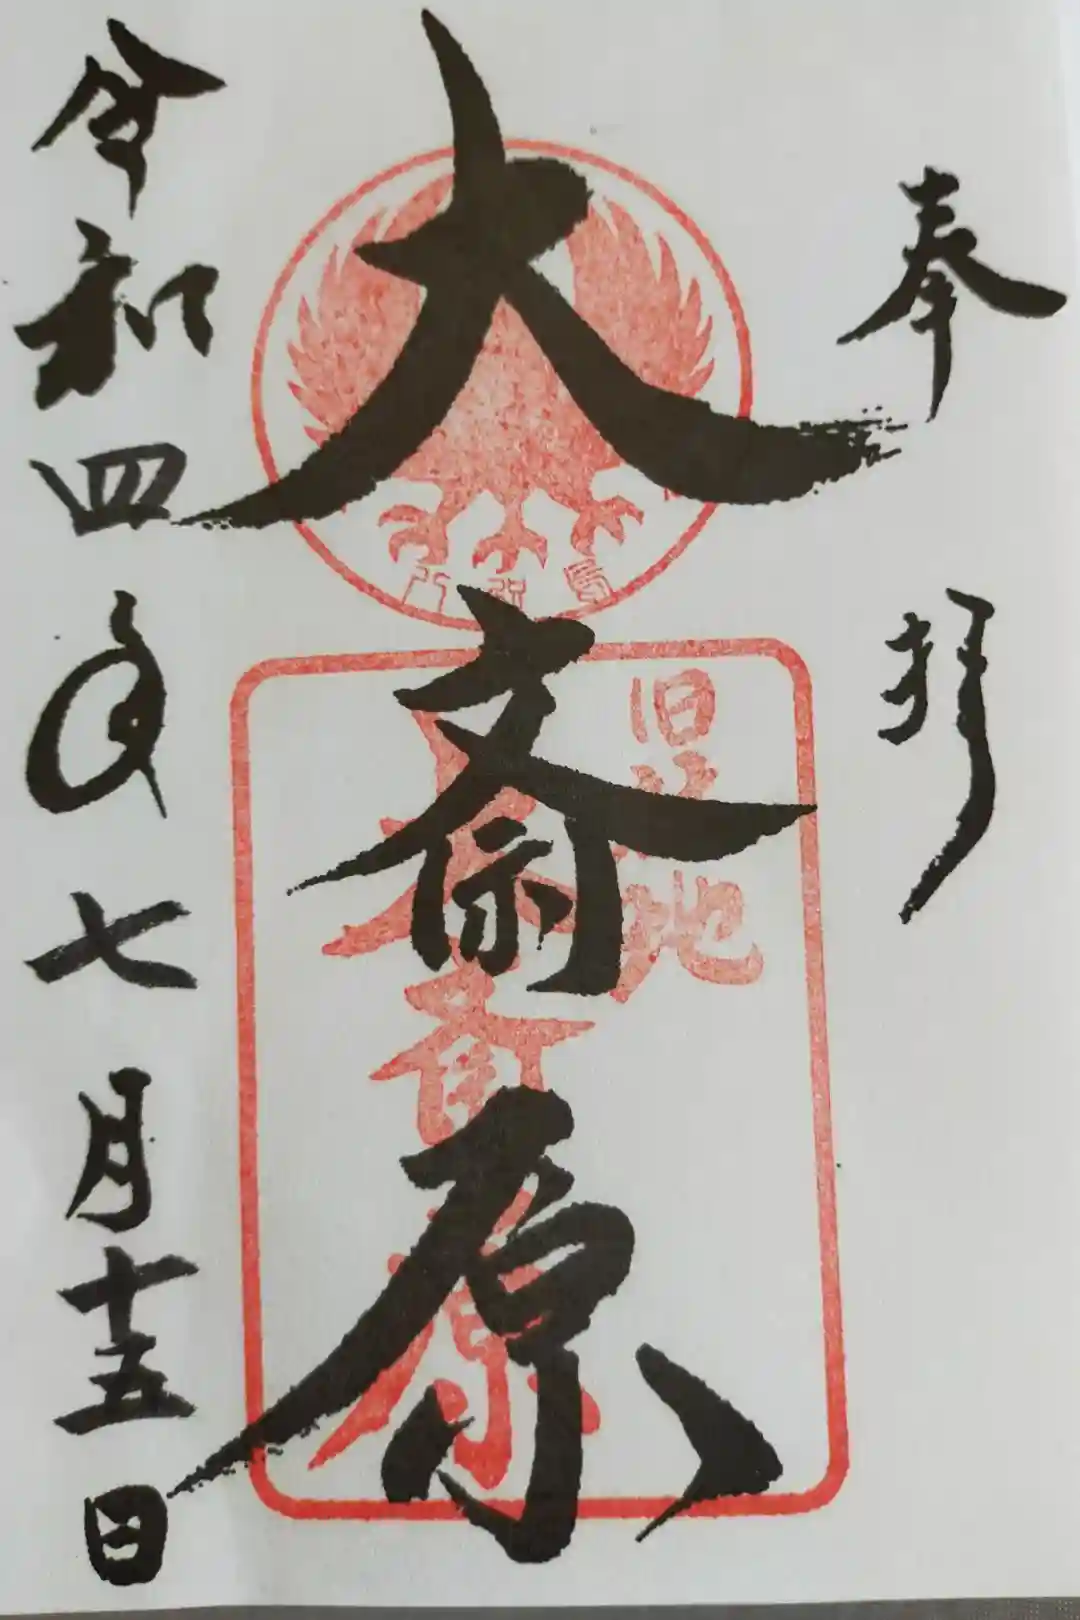 奉拝
旧社地
大斎原
大斎原
令和四年七月十五日